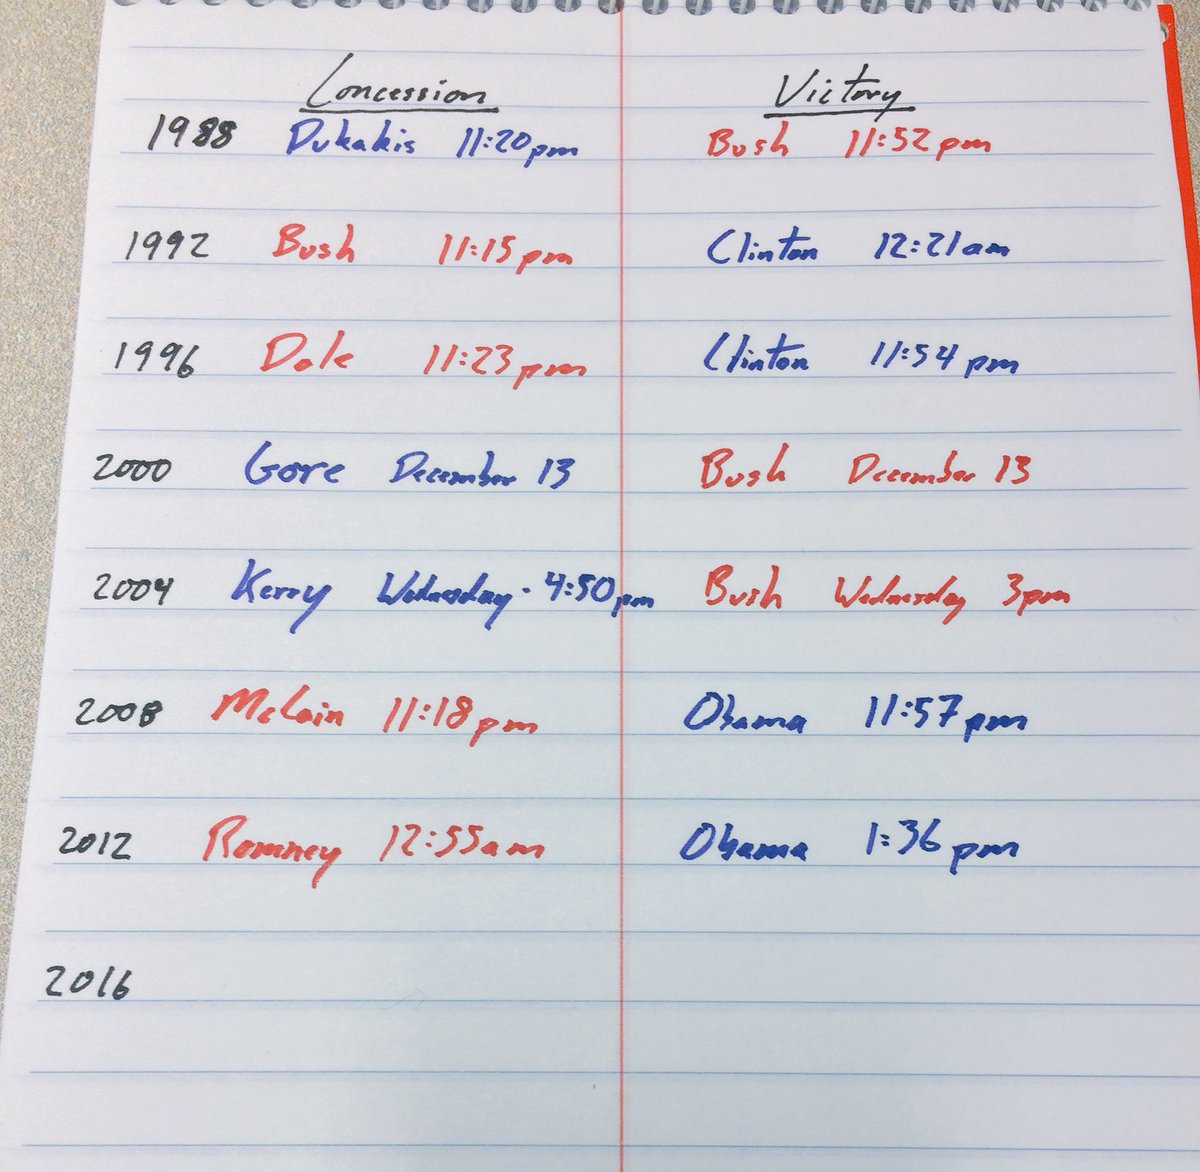 Concession Victory
1988 Dukakis 11:20pm Bush 11:52pm
1992 Bush 11:15pm Clinton 12:21am
1996 Dole 11:23pm Clinton 11:54pm
2000 Gore December 13 Bush December 13
2004 Kerry Wednesday - 4:50pm Bush Wednesday 3pm
2008 McCain 11:18pm Obama 11:57pm
2012 Romney 12:55am Obama 1:36pm
2016